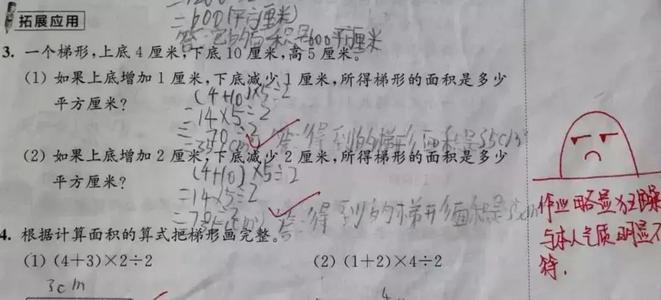 =600(平方厘米)
拓展应用
答:它的面积是600平方厘米
3. 一个梯形,上底4厘米,下底10厘米,高5厘米。
(1) 如果上底增加1厘米,下底减少1厘米,所得梯形的面积是多少
平方厘米?
(4+10)×5÷2
=14×5÷2
=70÷2
答:得到的梯形面积是35cm²
(2) 如果上底增加2厘米,下底减少2厘米,所得梯形的面积是多少
平方厘米?
(4+10)×5÷2
=14×5÷2
=70÷2
答:得到的梯形面积是
作业略显狂躁
与本人气质明显不
符.
4. 根据计算面积的算式把梯形画完整。
(1) (4+3)×2÷2
(2) (1+2)×4÷2
3cm
4